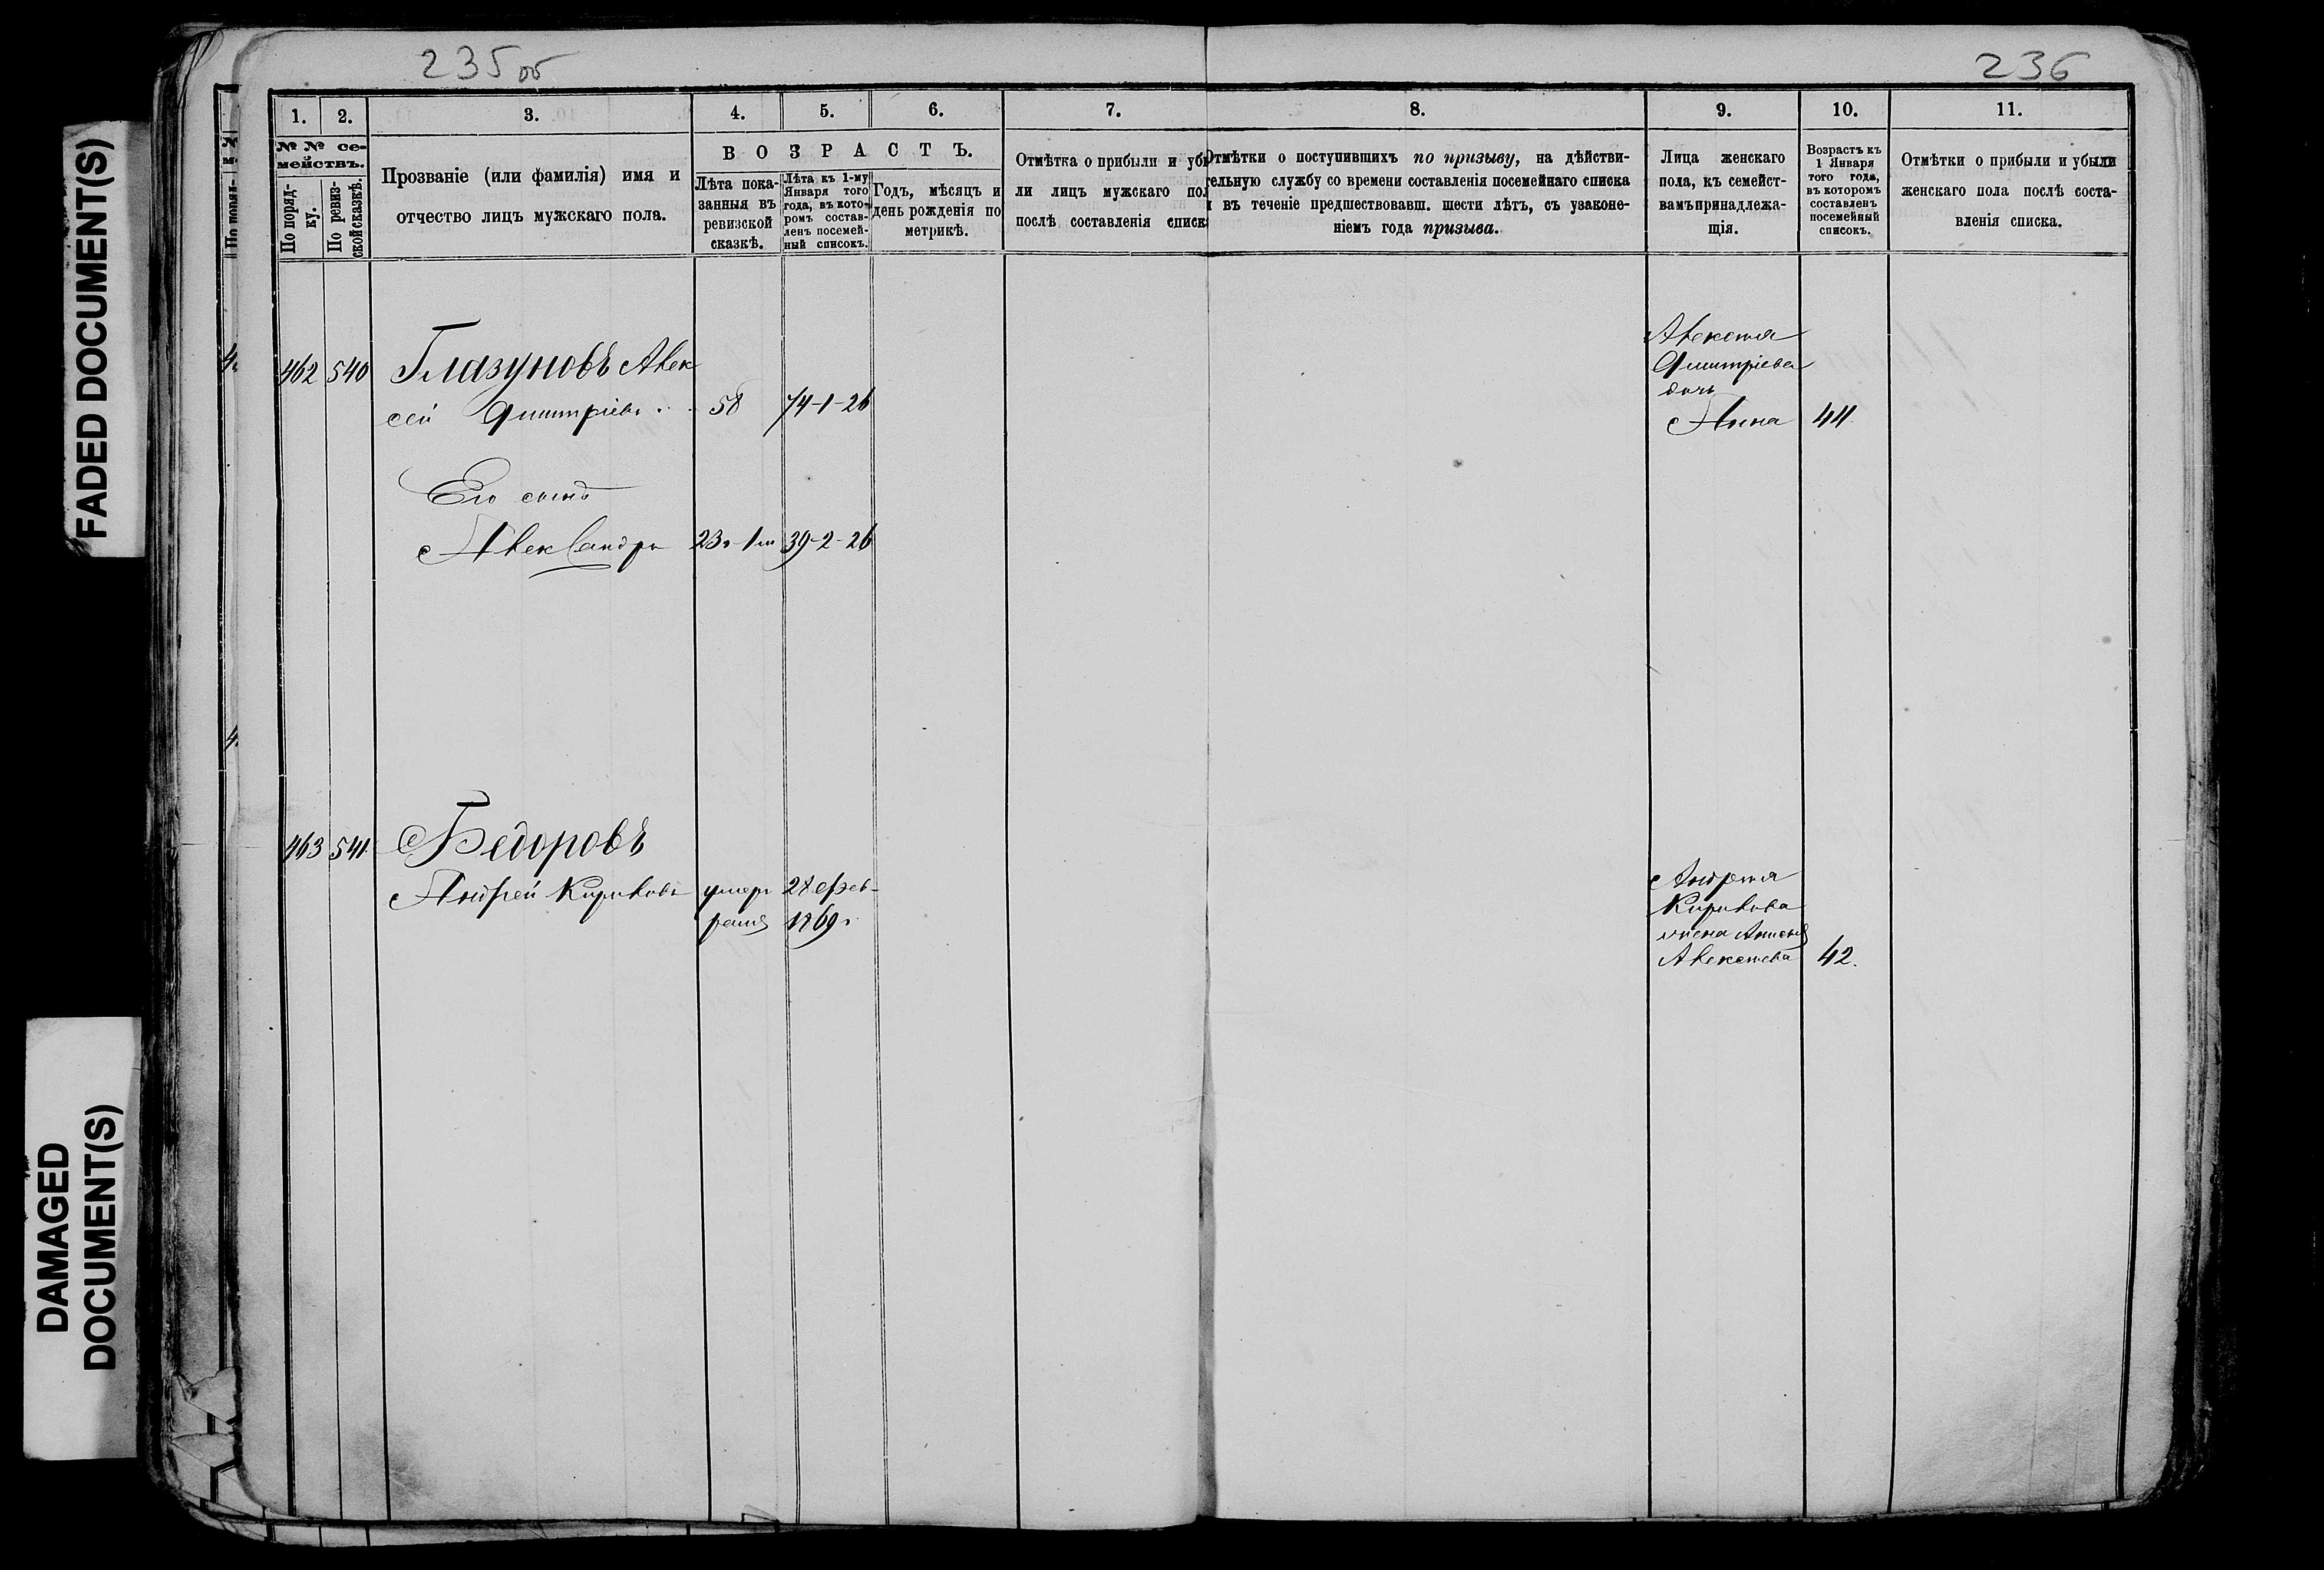 235 об
236
FADED DOCUMENT(S)
DAMAGED
DOCUMENT(S)
1.
2.
3.
4.
5.
6.
7.
8.
9.
10.
11.
№ № се-
мействъ.
По поряд-
ку.
По ревиз-
ской сказкѣ.
Прозваніе (или фамилія) имя и
отчество лицъ мужскаго пола.
ВОЗРАСТЪ.
Лѣта пока-
занныя въ
ревизской
сказкѣ.
Лѣта къ 1-му
Января того
года, въ кото-
ромъ состав-
ленъ посемей-
ный списокъ.
Годъ, мѣсяцъ и
день рожденія по
метрикѣ.
Отмѣтка о прибыли и убы
ли лицъ мужскаго пол
послѣ составленія списк
Отмѣтки о поступившихъ по призыву, на дѣйстви-
тельную службу со времени составленія посемейнаго списка
и въ теченіе предшествовавш. шести лѣтъ, съ узаконе-
ніемъ года призыва.
Лица женскаго
пола, къ семейст-
вамъ принадлежа-
щія.
Возрастъ къ
1 Января
того года,
въ которомъ
составленъ
посемейный
списокъ.
Отмѣтки о прибыли и убыли
женскаго пола послѣ соста-
вленія списка.
462 540 Глазуновъ Алек
сей Дмитріевъ 58 74-1-26
Его сынъ
Александръ 23г-1м 39-2-26
Алексѣя
Дмитріева
дочь
Анна 44
463 541 Ѳедоровъ
Андрей Кириловъ умеръ 28 Фев-
раля 1869 г
Андрея
Кирилова
жена Анисья
Алексѣева 42.